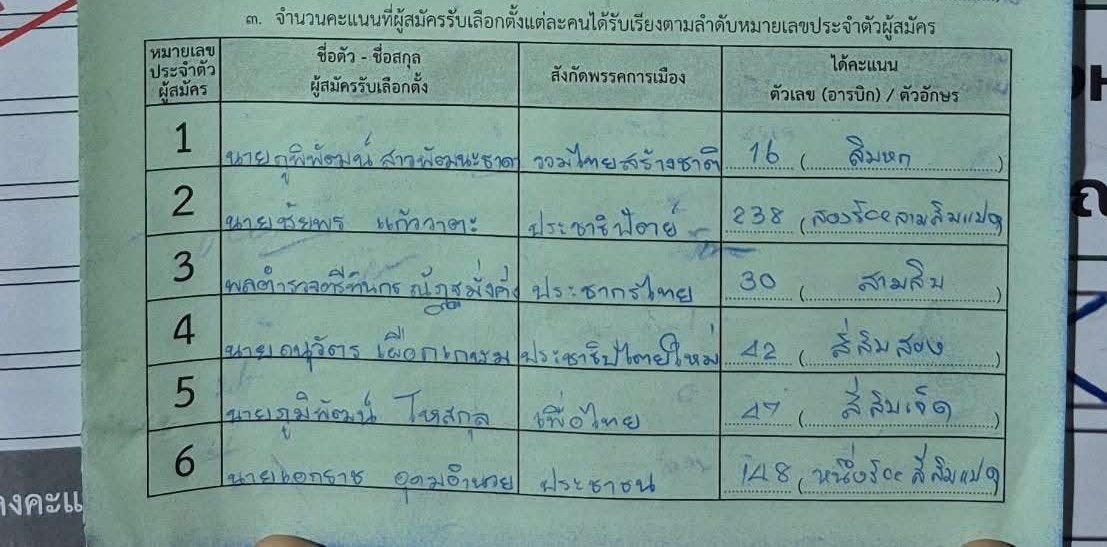 ๓. จำนวนคะแนนที่ผู้สมัครรับเลือกตั้งแต่ละคนได้รับเรียงตามลำดับหมายเลขประจำตัวผู้สมัคร
หมายเลข
ประจำตัว
ผู้สมัคร
ชื่อตัว - ชื่อสกุล
ผู้สมัครรับเลือกตั้ง
สังกัดพรรคการเมือง
ได้คะแนน
ตัวเลข (อารบิก) / ตัวอักษร
1 นายภูพิพัฒน์ สาวพัฒนะธาดา รวมไทยสร้างชาติ 16 (สิบหก)
2 นายชัยพร แก้ววาตะ ประชาธิปัตย์ 238 (สองร้อยสามสิบแปด)
3 พลตำรวจตรีทินกร ประชากรไทย 30 (สามสิบ)
4 นายอนุวัตร เผือกเกษม ประชาธิปไตยใหม่ 42 (สี่สิบสอง)
5 นายภูมิพัฒน์ โหสกุล เพื่อไทย 47 (สี่สิบเจ็ด)
6 นายเอกราช อุดมอำนวย ประชาชน 148 (หนึ่งร้อยสี่สิบแปด)